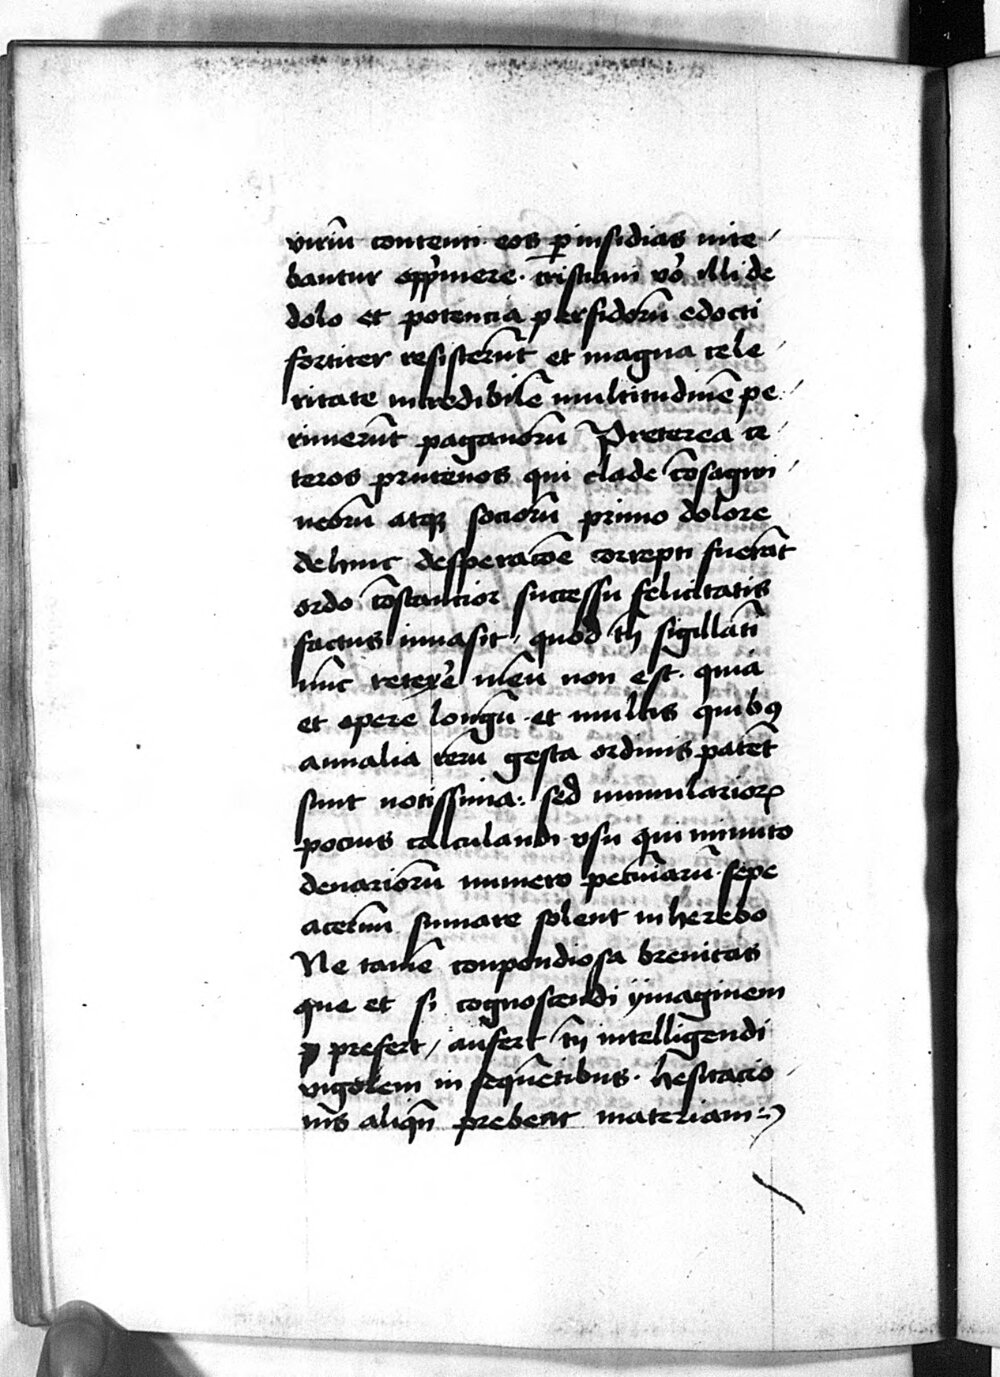 viriũ contenti eos p̱ insidias nite
bantur opp̃mere. cristiani vo᷒ illi de
dolo et potencia perfidorũ edocti
fortiter resisterũt et magna cele
ritate incredibilẽ multitudinẽ pe
rimerũt paganorũ Preterea ce
teros prutenos qui clade cõsagwi
neorũ atqꝫ sociorũ primo dolore
dehinc desperacõe correpti fuerãt
ordo cõstancior successu felicitatis
factus inuasit, quod tñ sigillati᷒
nũc reterẽ meũ non est. quia
et opere longũ et multis quibꝰ
annalia rerũ gesta ordinis patẽt
sunt notissima: sed nummulariorꝝ
pocius calculandi vsu qui minuto
denariorũ numero pecuniarũ sepe
aceruu sumare solent inherebo
Ne tamẽ conpendiosa breuitas
que et si cognoscendi ymaginem
p prefert, aufert tñ intelligendi
vigorem in sequẽtibus. hesitacio
nis aliqñ prebeat materiam: